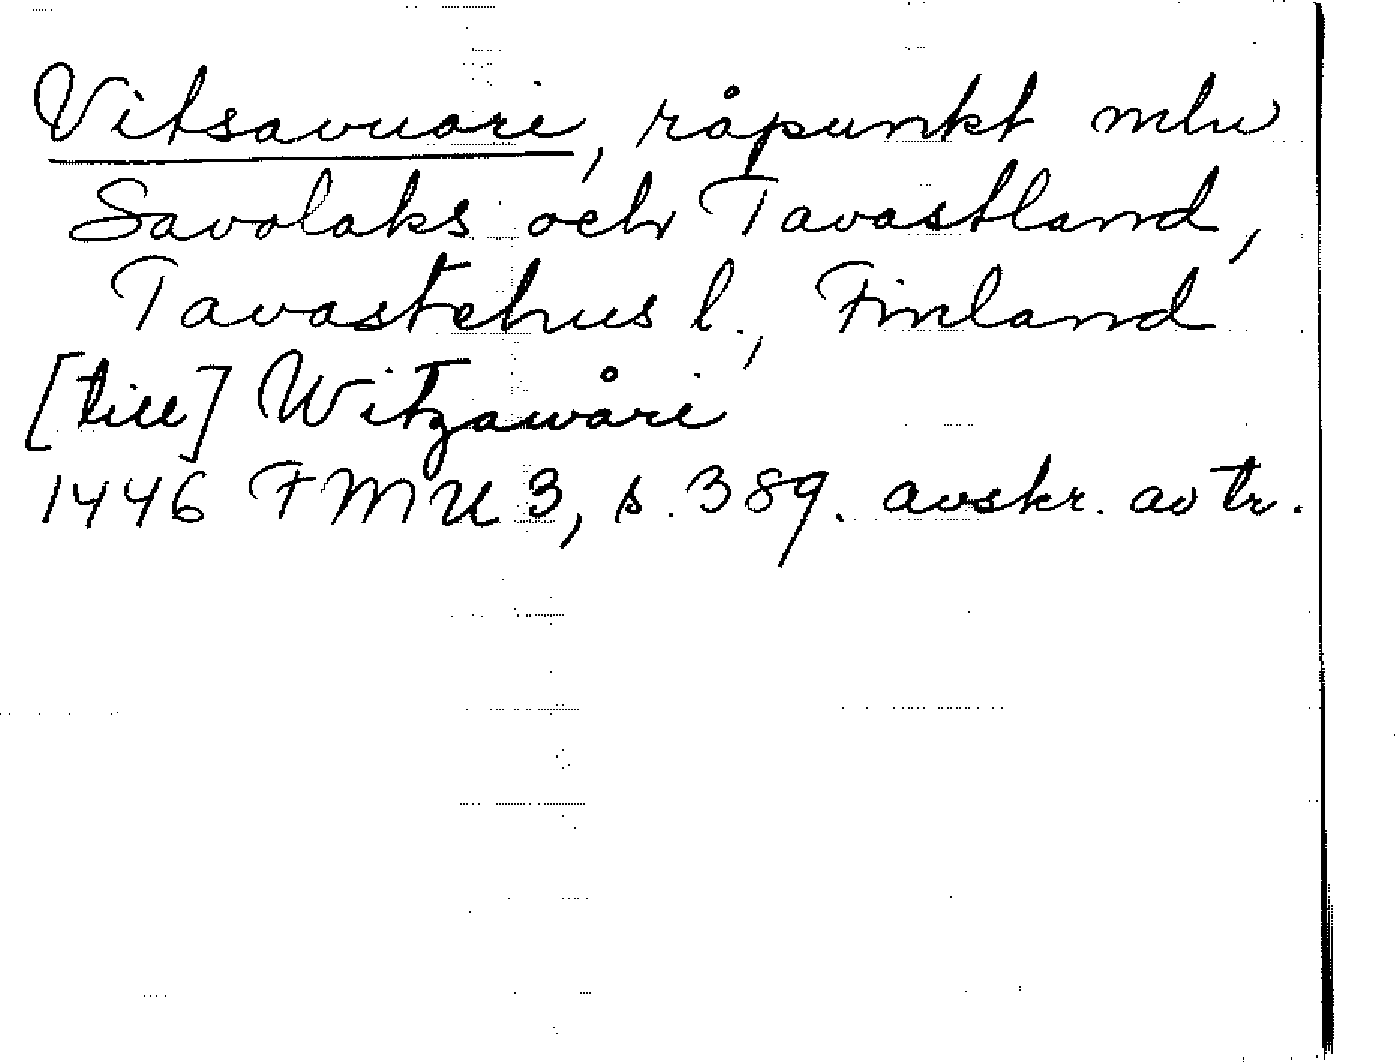 Vitsavuori, råpunkt mlu
Savolaks och Tavastland,
Tavastehus l., Finland
[till] Witzawåri
1446 FMU 3, s. 389. avskr. av tr.